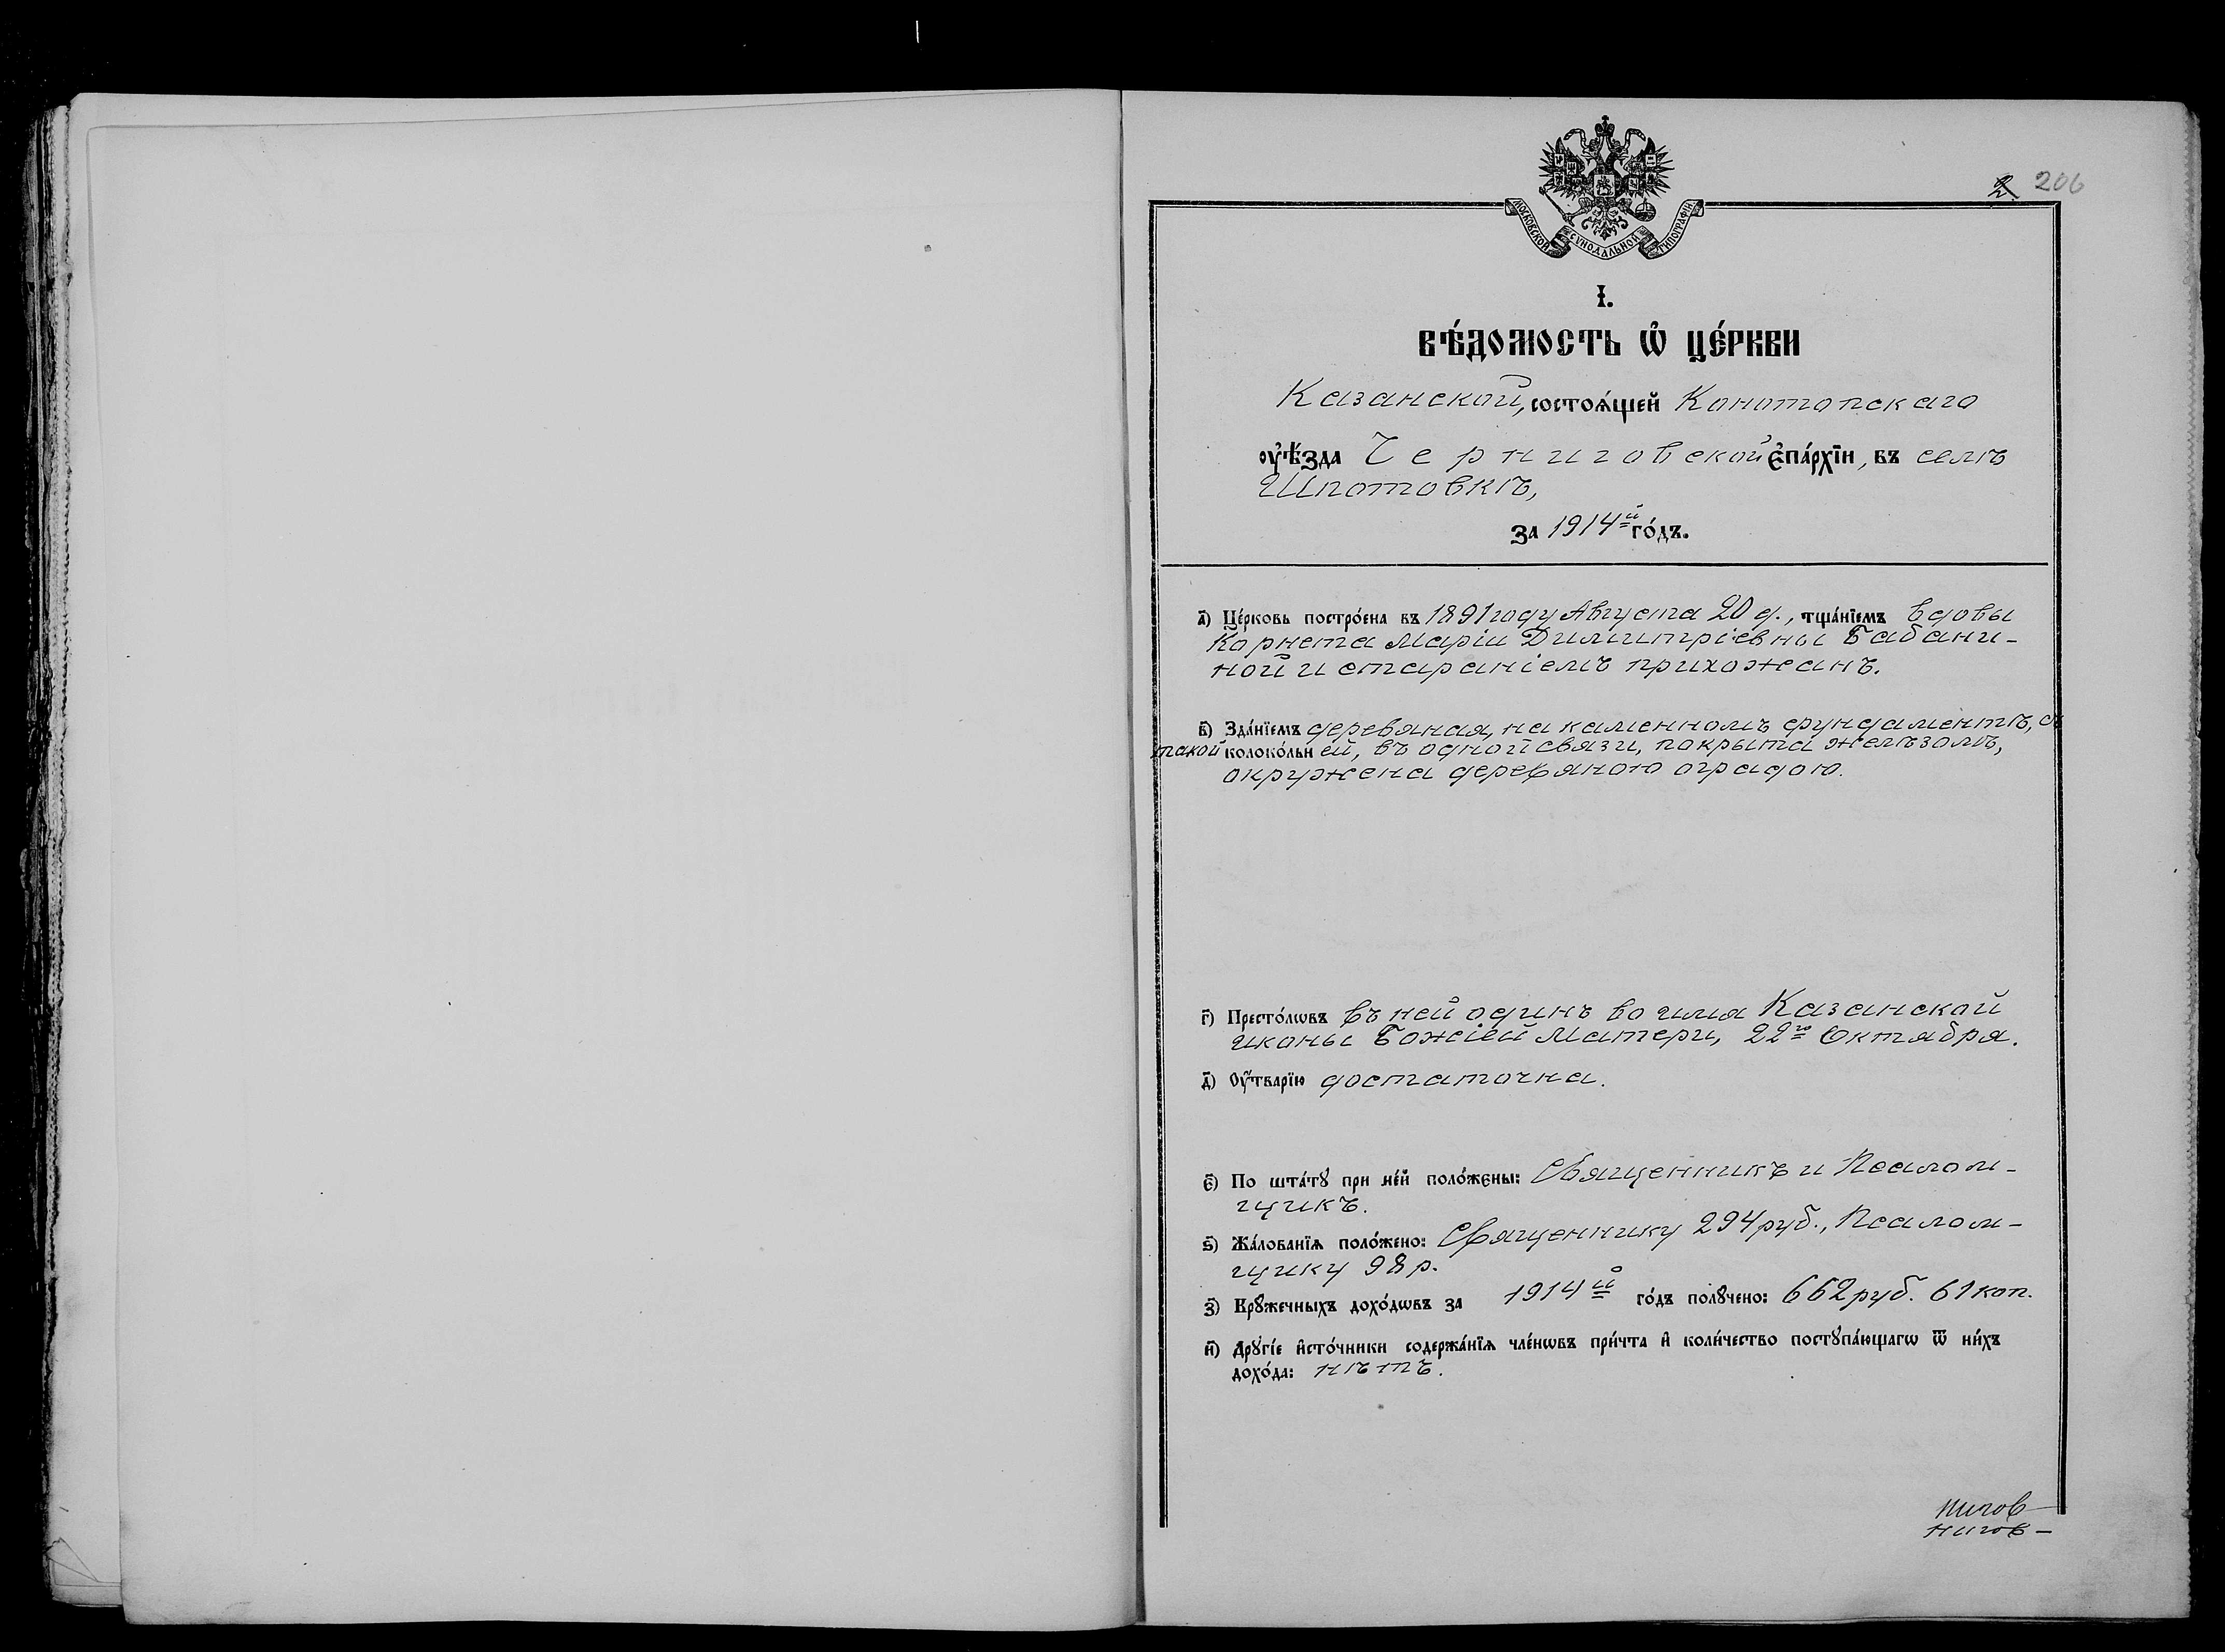 2 206
МОСКОВСКОЙ СѴНОДАЛЬНОЙ ТИПОГРАФІИ
І.
ВѢ́ДОМОСТЬ Ѡ҆ ЦЕ́РКВИ
Казанской, состоѧ́щей Конотопскаго
ᲂу҆ѣ́зда Черниговской є҆па́рхїи, въ селѣ
Шпотовкѣ,
за 1914й го́дъ.
а҃) Це́рковь постро́ена въ 1891 году Августа 20 д., тща́нїемъ вдовы
Корнета Маріи Димитріевны Бабани-
ной и стараніемъ прихожанъ.
в҃) Зда́нїемъ деревяная, на каменномъ фундаментѣ, съ
такой колоко́льн ей, въ одной связи, покрыта желѣзомъ,
окружена деревяною оградою.
г҃) Престо́лѡвъ въ ней одинъ во имя Казанской
иконы Божіей Матери, 22го Октября.
д҃) Оу҆́тварїю достаточна.
є҃) По шта́тꙋ при не́й поло́жены: Священникъ и Псалом-
щикъ.
ѕ҃) Жа́лованїѧ поло́жено: Священнику 294 руб., Псалом-
щику 98 р.
з҃) Крꙋжечныхъ дохо́дѡвъ за 1914й го́дъ полꙋчено: 662 руб. 61 коп.
и҃) Дрꙋгі́е и҆сто́чники содержа́нїѧ чле́нѡвъ при́чта и҆ коли́чество постꙋпа́ющагѡ ѿ ни́хъ
дохо́да: нѣтъ.
нигов
нигов-